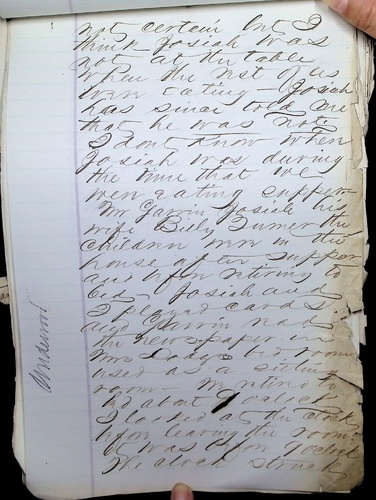 not certain but I
think Josiah was
not at the table
when the rest of us
were eating - Josiah
has since told me
that he was not.
I dont know where
Josiah was during
the time that we
were eating supper.
Mr Gavin Josiah his
wife Billy Turner the
children were in the
house after supper
and upon retiring to
bed - Josiah and
I played cards
and Gavin read
the newspaper in
Mrs bed room
used as a sitting
room - We retired to
bed about 9 oclock
I looked at the clock
upon leaving the room
it was 9 oclock
The clock struck